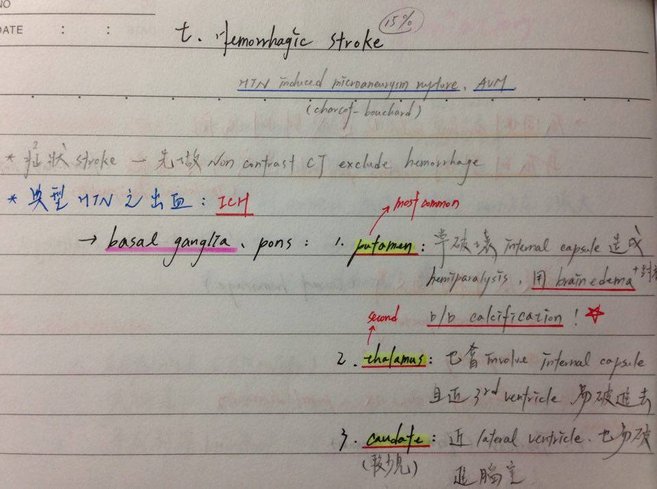 NO
DATE : :
t. Hemorrhagic stroke 15%
HTN induced microaneurysm rupture、AVM
(charcot-bouchard)
* 症狀 stroke — 先做 Non contrast CT exclude hemorrhage
* 典型 HTN 之出血: ICH
→ basal ganglia、pons: 1. putamen: 常破壞 internal capsule 造成
most common
hemiparalysis, 用 brain edema
second b/b calcification! ☆
2. thalamus: 也會 involve internal capsule
且近 3rd ventricle 易破進去
3. caudate: 近 lateral ventricle. 也易破
(較少見) 進腦室